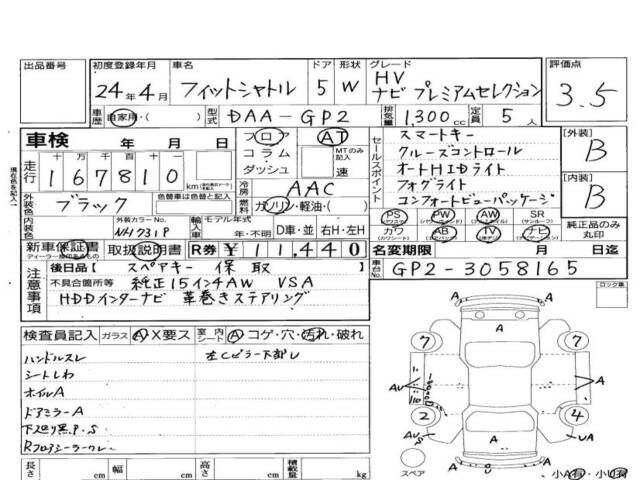 出品番号 初度登録年月 車名 ドア 形状 グレード 評価点
24年4月 フィットシャトル 5 W HV ナビ プレミアムセレクション 3.5
車歴 自家用・( ) 型式 DAA-GP2 排気量 1,300cc 定員 5人
車検 年 月 日 フロア AT スマートキー [外装]
走行 十 万 千 百 十 一 コラム MTのみ記入 セールスポイント クルーズコントロール B
167810 km ダッシュ 速 オートHIDライト
冷房 AAC フォグライト [内装]
外装色 ブラック 色替車は色替と記入 燃料 ガソリン・軽油・( ) コンフォートビューパッケージ B
内装色 外装カラーNo. NH731P 輸入車 モデル年式 年・不明 D車・並 右H・左H
PS PW AW SR
カワ AB TV ナビ 純正品のみ丸印
新車保証書 取扱説明書 R券 ¥11,440 名変期限 月 日迄
注意事項 後日品 スペアキー 保取 車台No. GP2-3058165
不具合箇所等 純正15インチAW VSA
HDDインターナビ 革巻きステアリング
ロック車
検査員記入 ガラス A・X要ス 室内シート A コゲ・穴・汚れ・破れ
ハンドルスレ 左Cピラー下部U
シートしわ
ホイルA
ドアミラーA
下スリ黒.P.S
7 7
2 4
A A A A
AU UA
スペア 小A有・小U有
長さ cm 幅 cm 高さ cm 積載量 kg